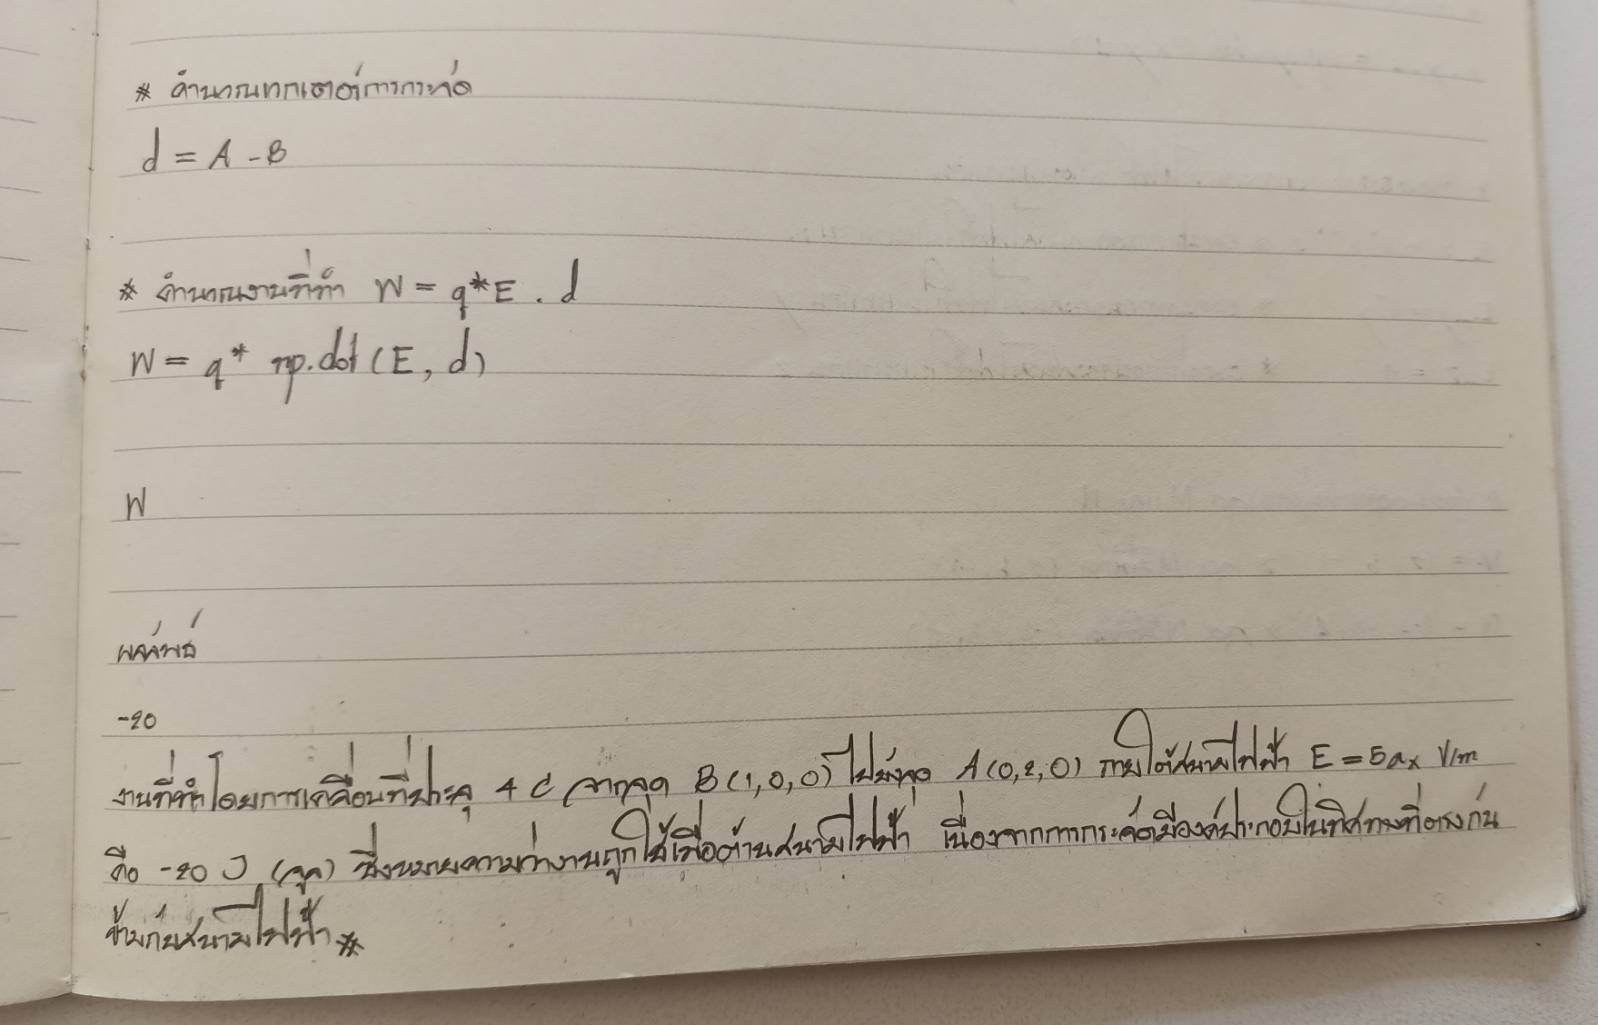 * คำนวณเวกเตอร์การกระจัด
d = A - B
* คำนวณงานที่ทำ W = q*E . d
W = q* np.dot(E, d)
W
ผลลัพธ์
-20
งานที่ทำโดยการเคลื่อนที่ประจุ 4 C จากจุด B(1,0,0) ไปยังจุด A(0,2,0) ภายใต้สนามไฟฟ้า E = 5ax V/m
คือ -20 J (จูล) ซึ่งหมายความว่างานถูกใช้เพื่อต้านสนามไฟฟ้า เนื่องจากการกระจัดมีองค์ประกอบในทิศทางที่ตรงกัน
ข้ามกับสนามไฟฟ้า *